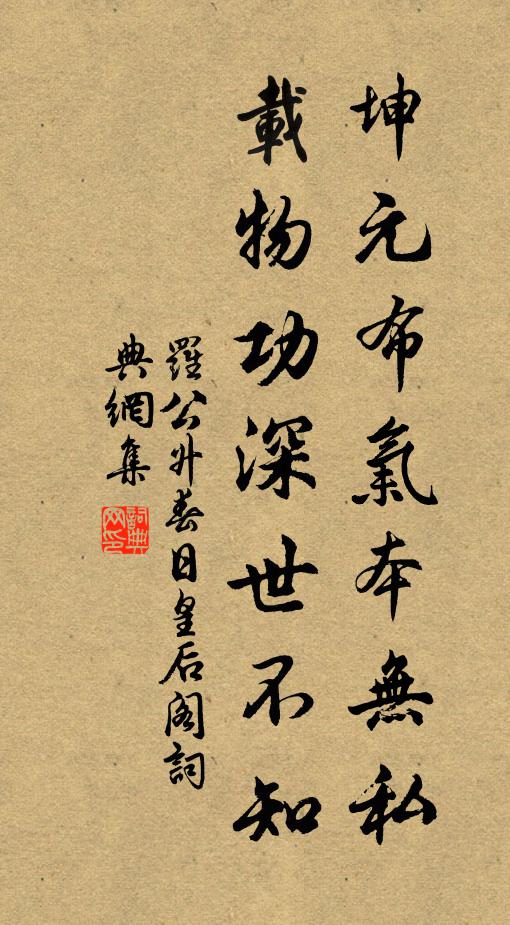 坤元布氣本無私
載物功深世不知
羅公升春日皇后阁詞
典網集
詞典網印